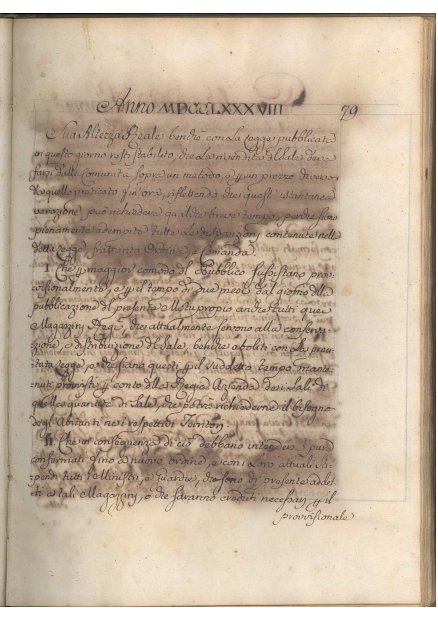 Anno MDCCLXXXVIII 79
Sua Altezza Reale benchè con La Legge pubblicata
in questo giorno resti stabilito, che La vendita del Sale deve
farsi dalle Comunità sopra un metodo, e un prezzo diverso
da quello praticato fin'ora, riflettendo che questa istantanea
variazione può richiedere qualche breve tempo, perchè siano
pienamente adempite tutte Le disposizioni contenute nella
detta Legge, frattanto Ordina, e Comanda
I. Che maggior comodo del Pubblico sussistano prov
visionalmente, e il tempo di due mesi dal giorno della
pubblicazione del presente Motuproprio anche tutti quei
Magazzini Regi, che attualmente servono alla conserva
zione, e distribuzione di Sale, benchè aboliti con La preci
tata Legge, e che siano questi il suddetto tempo mante
nuti provvisti conto della Regia Azienda dei Sali di
quella quantità di Sale, che potrà richiedere il bisogno
degl'Abitanti nei respettivi Territorj
II. Che in conseguenza di ciò debbano intendersi pure
confermati fino a nuovo ordine, e con i Loro attuali Sti
pendi tutti i Ministri, e Guardie, che sono di presente addet
ti a tali Magazzini, o che saranno creduti necessarj il
provvisionale